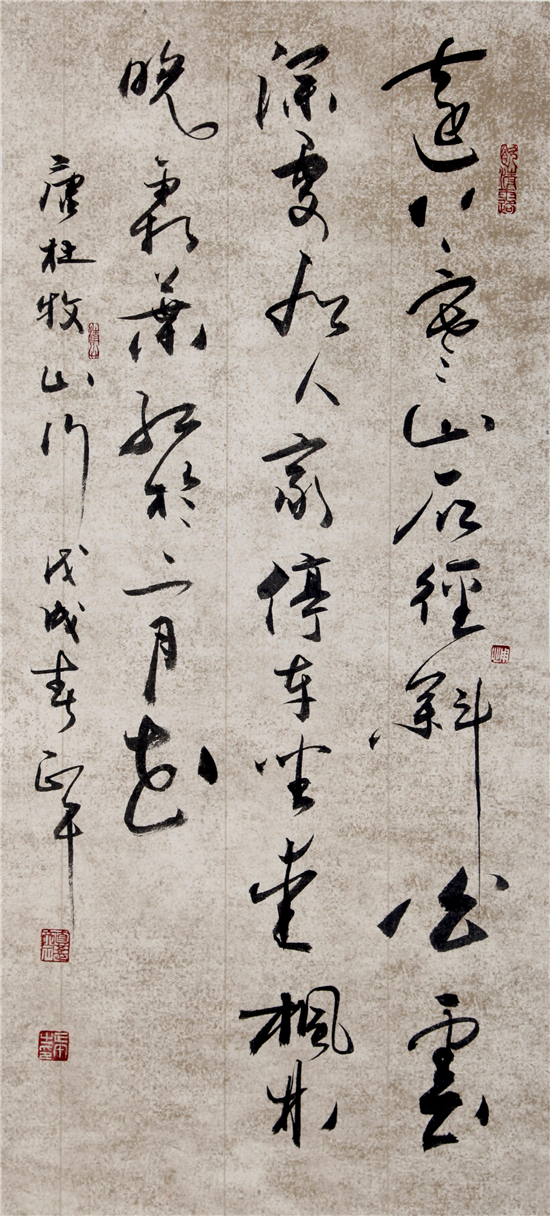 遠上寒山石徑斜白雲
深處有人家停車坐愛楓林
晚霜葉紅於二月花
唐杜牧山行 戊戌春